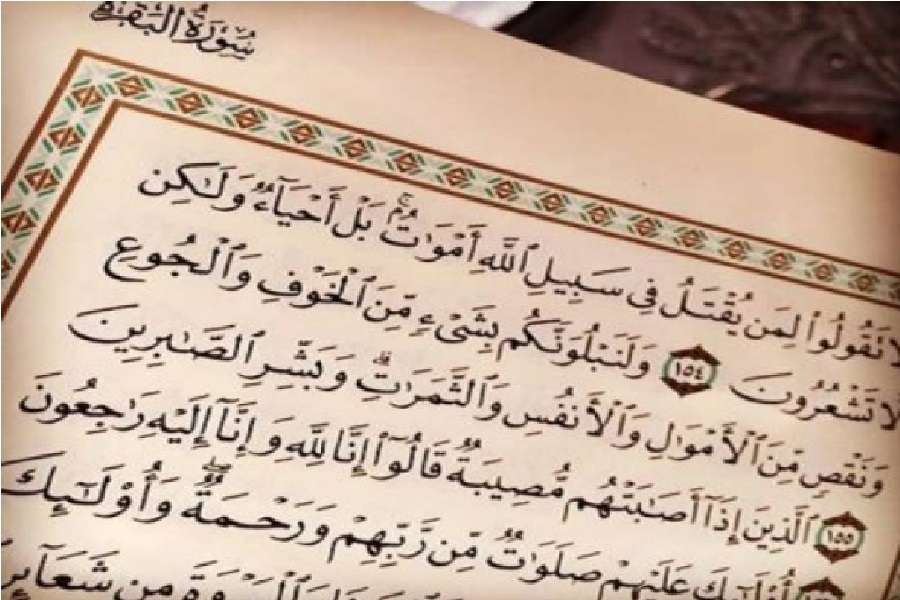 سُورَةُ البَقَرَةِ
لَا تَقُولُوا۟ لِمَن يُقْتَلُ فِى سَبِيلِ ٱللَّهِ أَمْوَٰتٌۢ ۚ بَلْ أَحْيَآءٌ وَلَٰكِن
لَّا تَشْعُرُونَ ١٥٤ وَلَنَبْلُوَنَّكُم بِشَىْءٍ مِّنَ ٱلْخَوْفِ وَٱلْجُوعِ
وَنَقْصٍ مِّنَ ٱلْأَمْوَٰلِ وَٱلْأَنفُسِ وَٱلثَّمَرَٰتِ ۗ وَبَشِّرِ ٱلصَّٰبِرِينَ
١٥٥ ٱلَّذِينَ إِذَآ أَصَٰبَتْهُم مُّصِيبَةٌ قَالُوٓا۟ إِنَّا لِلَّهِ وَإِنَّآ إِلَيْهِ رَٰجِعُونَ
أُو۟لَٰٓئِكَ عَلَيْهِمْ صَلَوَٰتٌ مِّن رَّبِّهِمْ وَرَحْمَةٌ ۖ وَأُو۟لَٰٓئِكَ
مِن شَعَآئِرِ